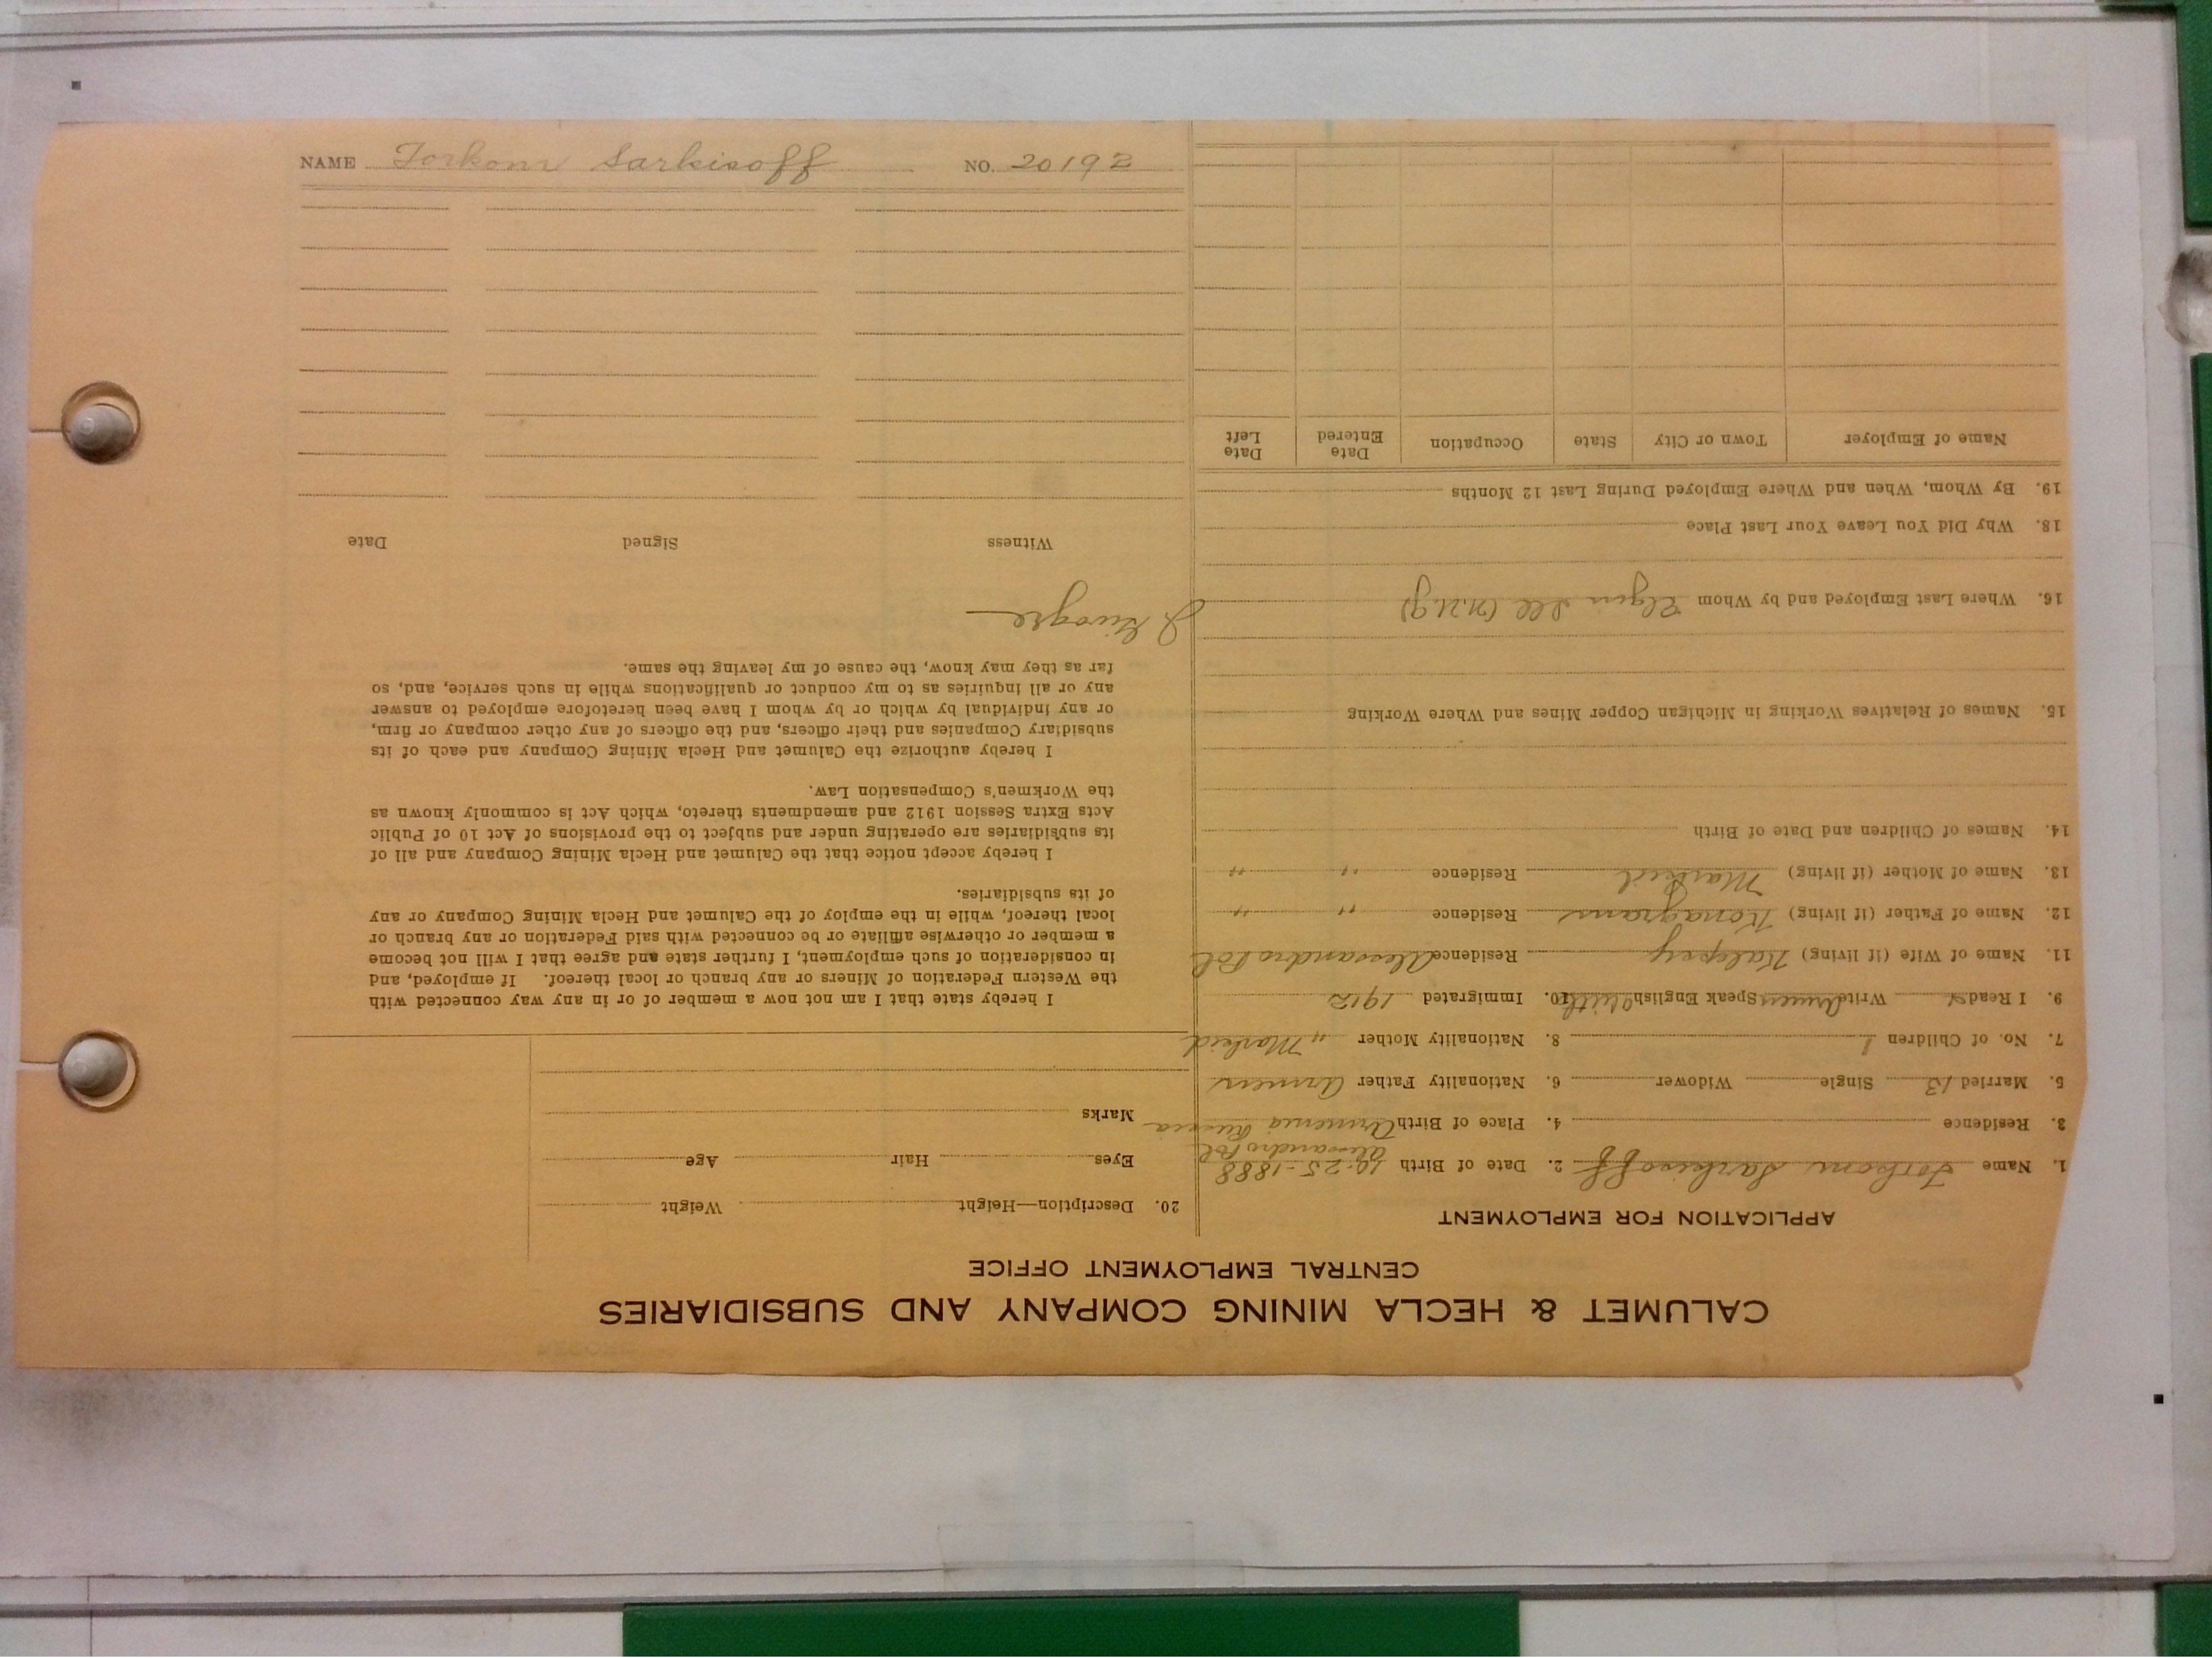 NAME Torkom Sarkisoff NO. 20192
CALUMET & HECLA MINING COMPANY AND SUBSIDIARIES
CENTRAL EMPLOYMENT OFFICE
APPLICATION FOR EMPLOYMENT
1. Name Torkom Sarkisoff 2. Date of Birth 10-25-1888
Alexandropol
3. Residence 4. Place of Birth Armenia Russia
5. Married 13 Single Widower 6. Nationality Father Armen
7. No. of Children 1 8. Nationality Mother " Markid
9. I Read Write Armen Speak English little 10. Immigrated 1912
11. Name of Wife (if living) Residence Alexandropol
12. Name of Father (if living) Residence " "
13. Name of Mother (if living) Markid Residence " "
14. Names of Children and Date of Birth
15. Names of Relatives Working in Michigan Copper Mines and Where Working
16. Where Last Employed and by Whom Elgin Ill
18. Why Did You Leave Your Last Place
19. By Whom, When and Where Employed During Last 12 Months
Name of Employer Town or City State Occupation Date Entered Date Left
20. Description—Height Weight
Eyes Hair Age
Marks
I hereby state that I am not now a member of or in any way connected with
the Western Federation of Miners or any branch or local thereof. If employed, and
in consideration of such employment, I further state and agree that I will not become
a member or otherwise affiliate or be connected with said Federation or any branch or
local thereof, while in the employ of the Calumet and Hecla Mining Company or any
of its subsidiaries.
I hereby accept notice that the Calumet and Hecla Mining Company and all of
its subsidiaries are operating under and subject to the provisions of Act 10 of Public
Acts Extra Session 1912 and amendments thereto, which Act is commonly known as
the Workmen's Compensation Law.
I hereby authorize the Calumet and Hecla Mining Company and each of its
subsidiary Companies and their officers, and the officers of any other company or firm,
or any individual by which or by whom I have been heretofore employed to answer
any or all inquiries as to my conduct or qualifications while in such service, and, so
far as they may know, the cause of my leaving the same.
Witness Signed Date